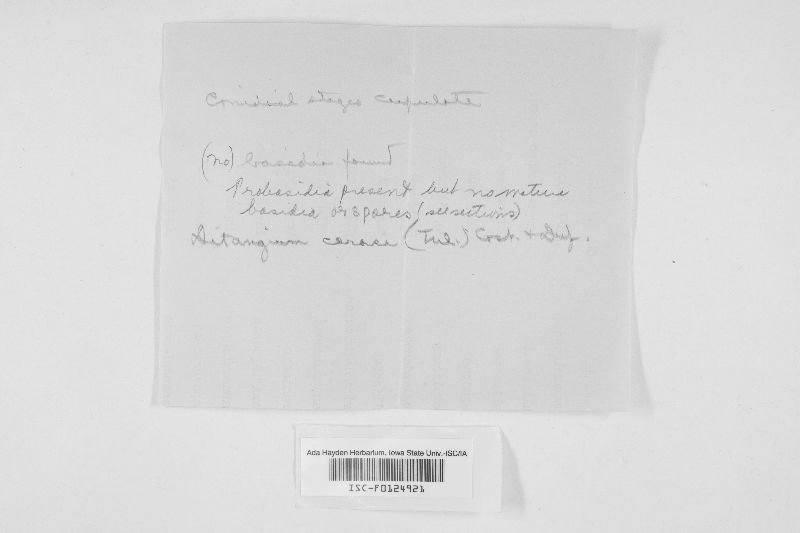 Conidial stages cupulate
(no) basidia found
Probasidia present but no mature
basidia or spores (see sections)
Ditangium cerasi (Tul.) Cost. + Duf.
Ada Hayden Herbarium, Iowa State Univ.-ISC/IA
ISC-F0124921